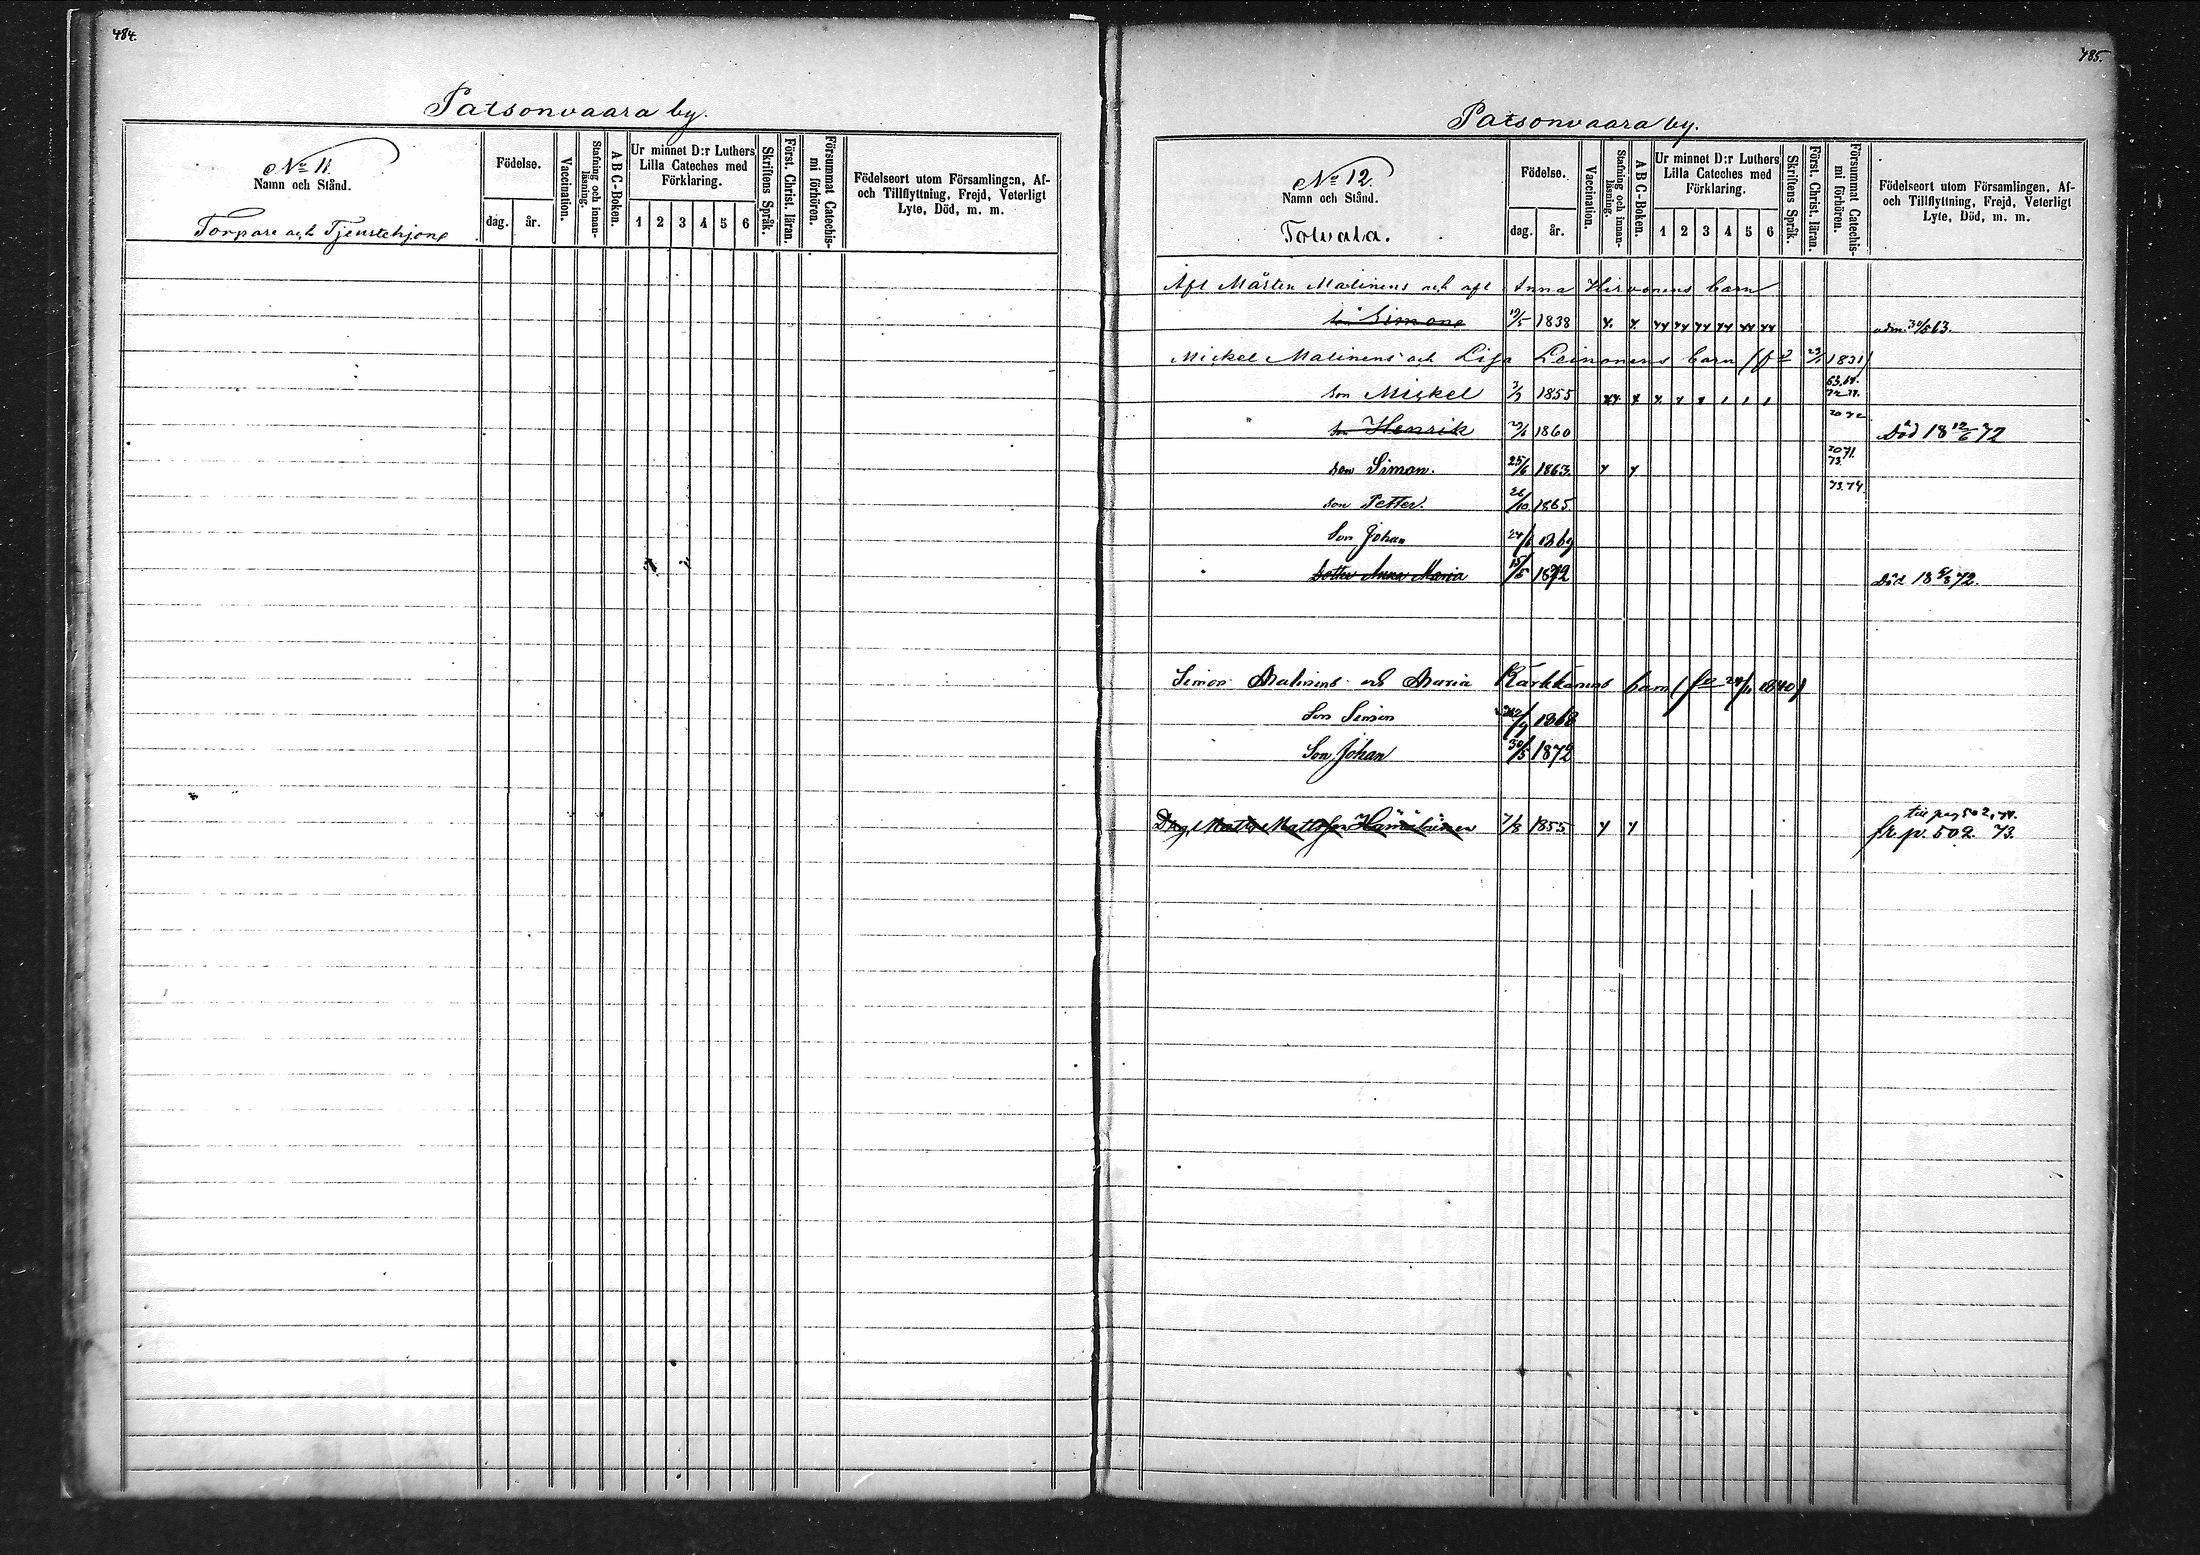 484.
Patsonvaara by.
No 11.
Namn och Stånd.
Torpare och Tjenstehjon
Födelse.
dag. år.
Vaccination.
Stafning och innanläsning.
A B C-Boken.
Ur minnet D:r Luthers Lilla Cateches med Förklaring.
1 2 3 4 5 6
Skriftens Språk.
Först. Christ. läran.
Försummat Catechismi förhören.
Födelseort utom Församlingen, Af- och Tillflyttning, Frejd, Veterligt Lyte, Död, m. m.
485.
Patsonvaara by.
No 12.
Namn och Stånd.
Tolvala.
Födelse.
dag. år.
Vaccination.
Stafning och innanläsning.
A B C-Boken.
Ur minnet D:r Luthers Lilla Cateches med Förklaring.
1 2 3 4 5 6
Skriftens Språk.
Först. Christ. läran.
Försummat Catechismi förhören.
Födelseort utom Församlingen, Af- och Tillflyttning, Frejd, Veterligt Lyte, Död, m. m.
Afl Mårten Malinens och afl Anna Hirvonens barn
son Simon 19/5 1838
Mickel Malinens och Lisa Leinonens barn 1831)
son Mickel 1855
son Henrik 1860 20 72 Död 18 12/6 72
son Simon. 25/6 1863 70 71. 73.
son Petter. 26/10 1865 73.74
Son Johan 1869
Dotter Anna Maria 15/5 1872 Död 18 72.
Simon Malinens och Maria Kärkkänens barn 1840)
Son Simon 1868
Son Johan 30/5 1872
till pag 502, 74.
Drg. Matts Mattsson Hämäläinen 7/8 1855 fr. p. 502. 73.